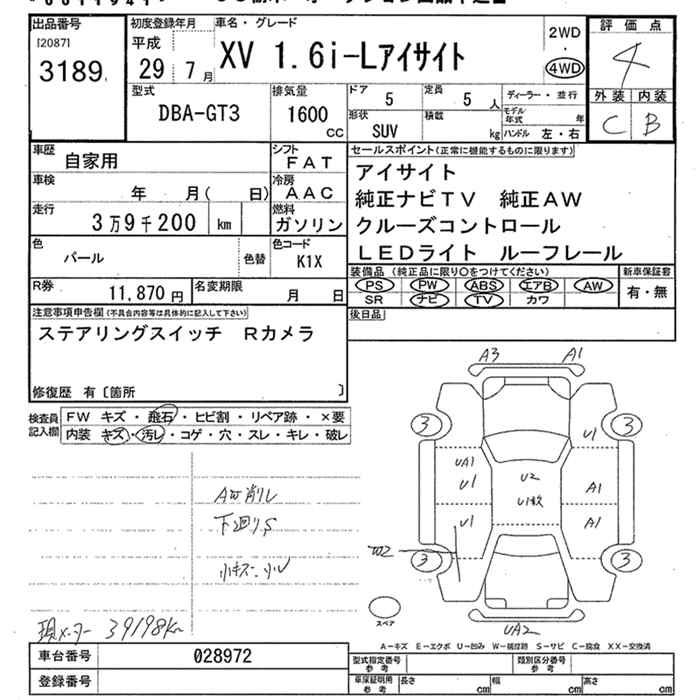 出品番号
[2087]
3189
初度登録年月
平成
29年7月
車名・グレード
XV 1.6i-Lアイサイト
2WD
・
4WD
評価点
4
外装 内装
C B
型式
DBA-GT3
排気量
1600
CC
ドア
5
定員
5 人
形状
SUV
積載
kg
ディーラー・並行
モデル年式 年
ハンドル 左・右
車歴
自家用
シフト
FAT
車検
年 月( 日)
冷房
AAC
走行
3万9千200 km
燃料
ガソリン
色
パール
色替
色コード
K1X
R券
11,870円
名変期限
月 日
セールスポイント(正常に機能するものに限ります)
アイサイト
純正ナビTV 純正AW
クルーズコントロール
LEDライト ルーフレール
装備品 (純正品に限り○をつけてください)
新車保証書
PS PW ABS エアB AW
有・無
SR ナビ TV カワ
後日品
注意事項申告欄(不具合内容等は具体的に記入して下さい)
ステアリングスイッチ Rカメラ
修復歴 有〔箇所 〕
検査員
記入欄
FW キズ・飛石・ヒビ割・リペア跡・×要
内装 キズ・汚レ・コゲ・穴・スレ・キレ・破レ
下廻りS
小キズ・小U
現メーター 39198km
A3 A1
3 3
U1
UA1
U1
U2
U1
A1
U1
A1
W2
3 3
スペア
UA2
A-キズ E-エクボ U-凹み W-補修跡 S-サビ C-腐食 XX-交換済
車台番号
028972
登録番号
型式指定番号
参考
類別区分番号
参考
車庫証明用
参考
長さ cm
幅 cm
高さ cm